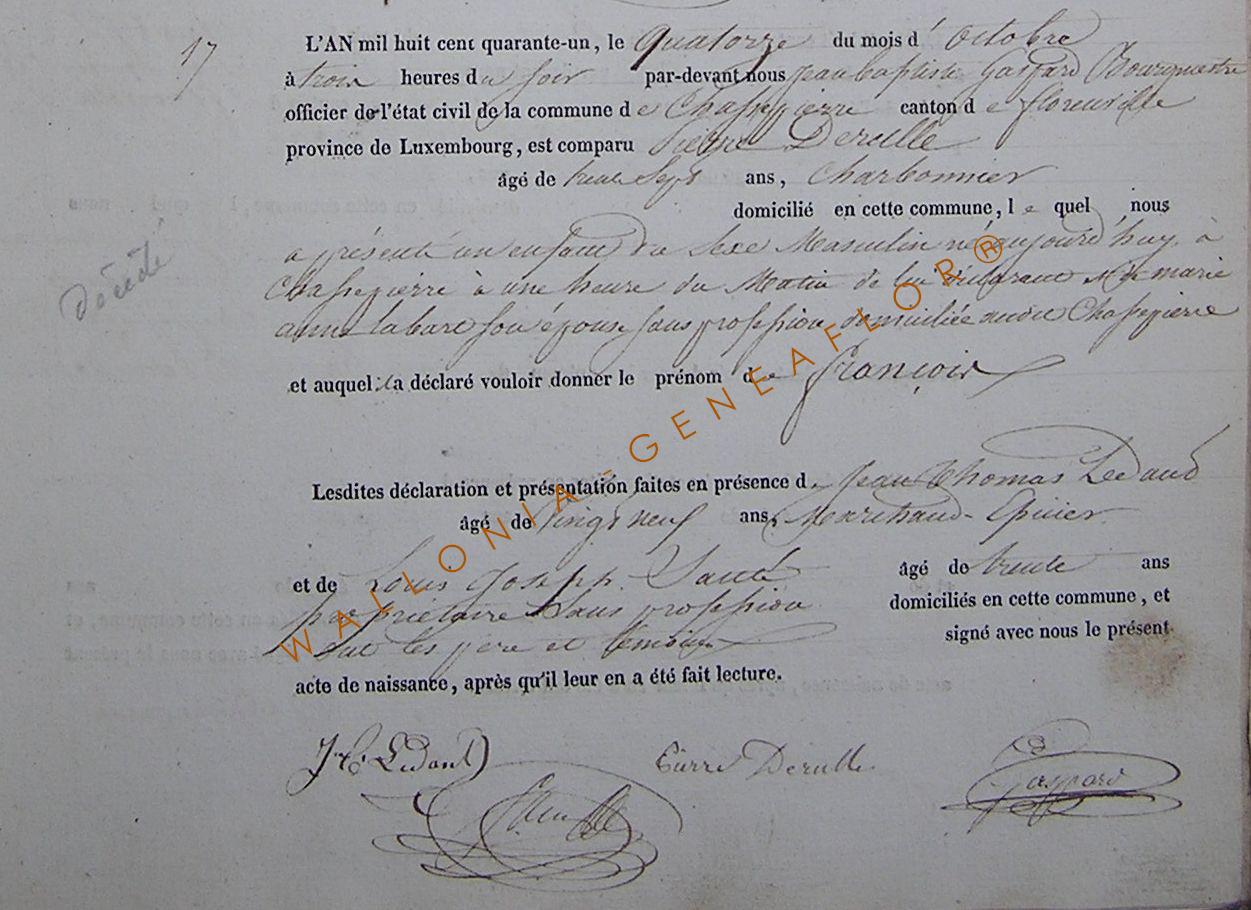 17
L'AN mil huit cent quarante-un, le quatorze du mois d' octobre
à trois heures du soir par-devant nous jean baptiste Gaspard Bourgmestre
officier de l'état civil de la commune de Chassepierre canton de florenville
province de Luxembourg, est comparu Pierre Derulle
âgé de trente Sept ans, Charbonnier
domicilié en cette commune, le quel nous
a présenté un enfant du Sexe Masculin né aujourd'huy à
Chassepierre à une heure du Matin de lui déclarant & de marie
anne labare son épouse sans profession domiciliée audit Chassepierre
Décédé
et auquel il a déclaré vouloir donner le prénom de françois
Lesdites déclaration et présentation faites en présence d. Jean Thomas Ledant
âgé de vingt neuf ans, Marchand Epicier
et de Louis Joseph âgé de trente ans
propriétaire Sans profession domiciliés en cette commune, et
les père et témoins signé avec nous le présent
acte de naissance, après qu'il leur en a été fait lecture.
Ledant Pierre Derulle Gaspard
WALLONIA-GENEAFLOR®